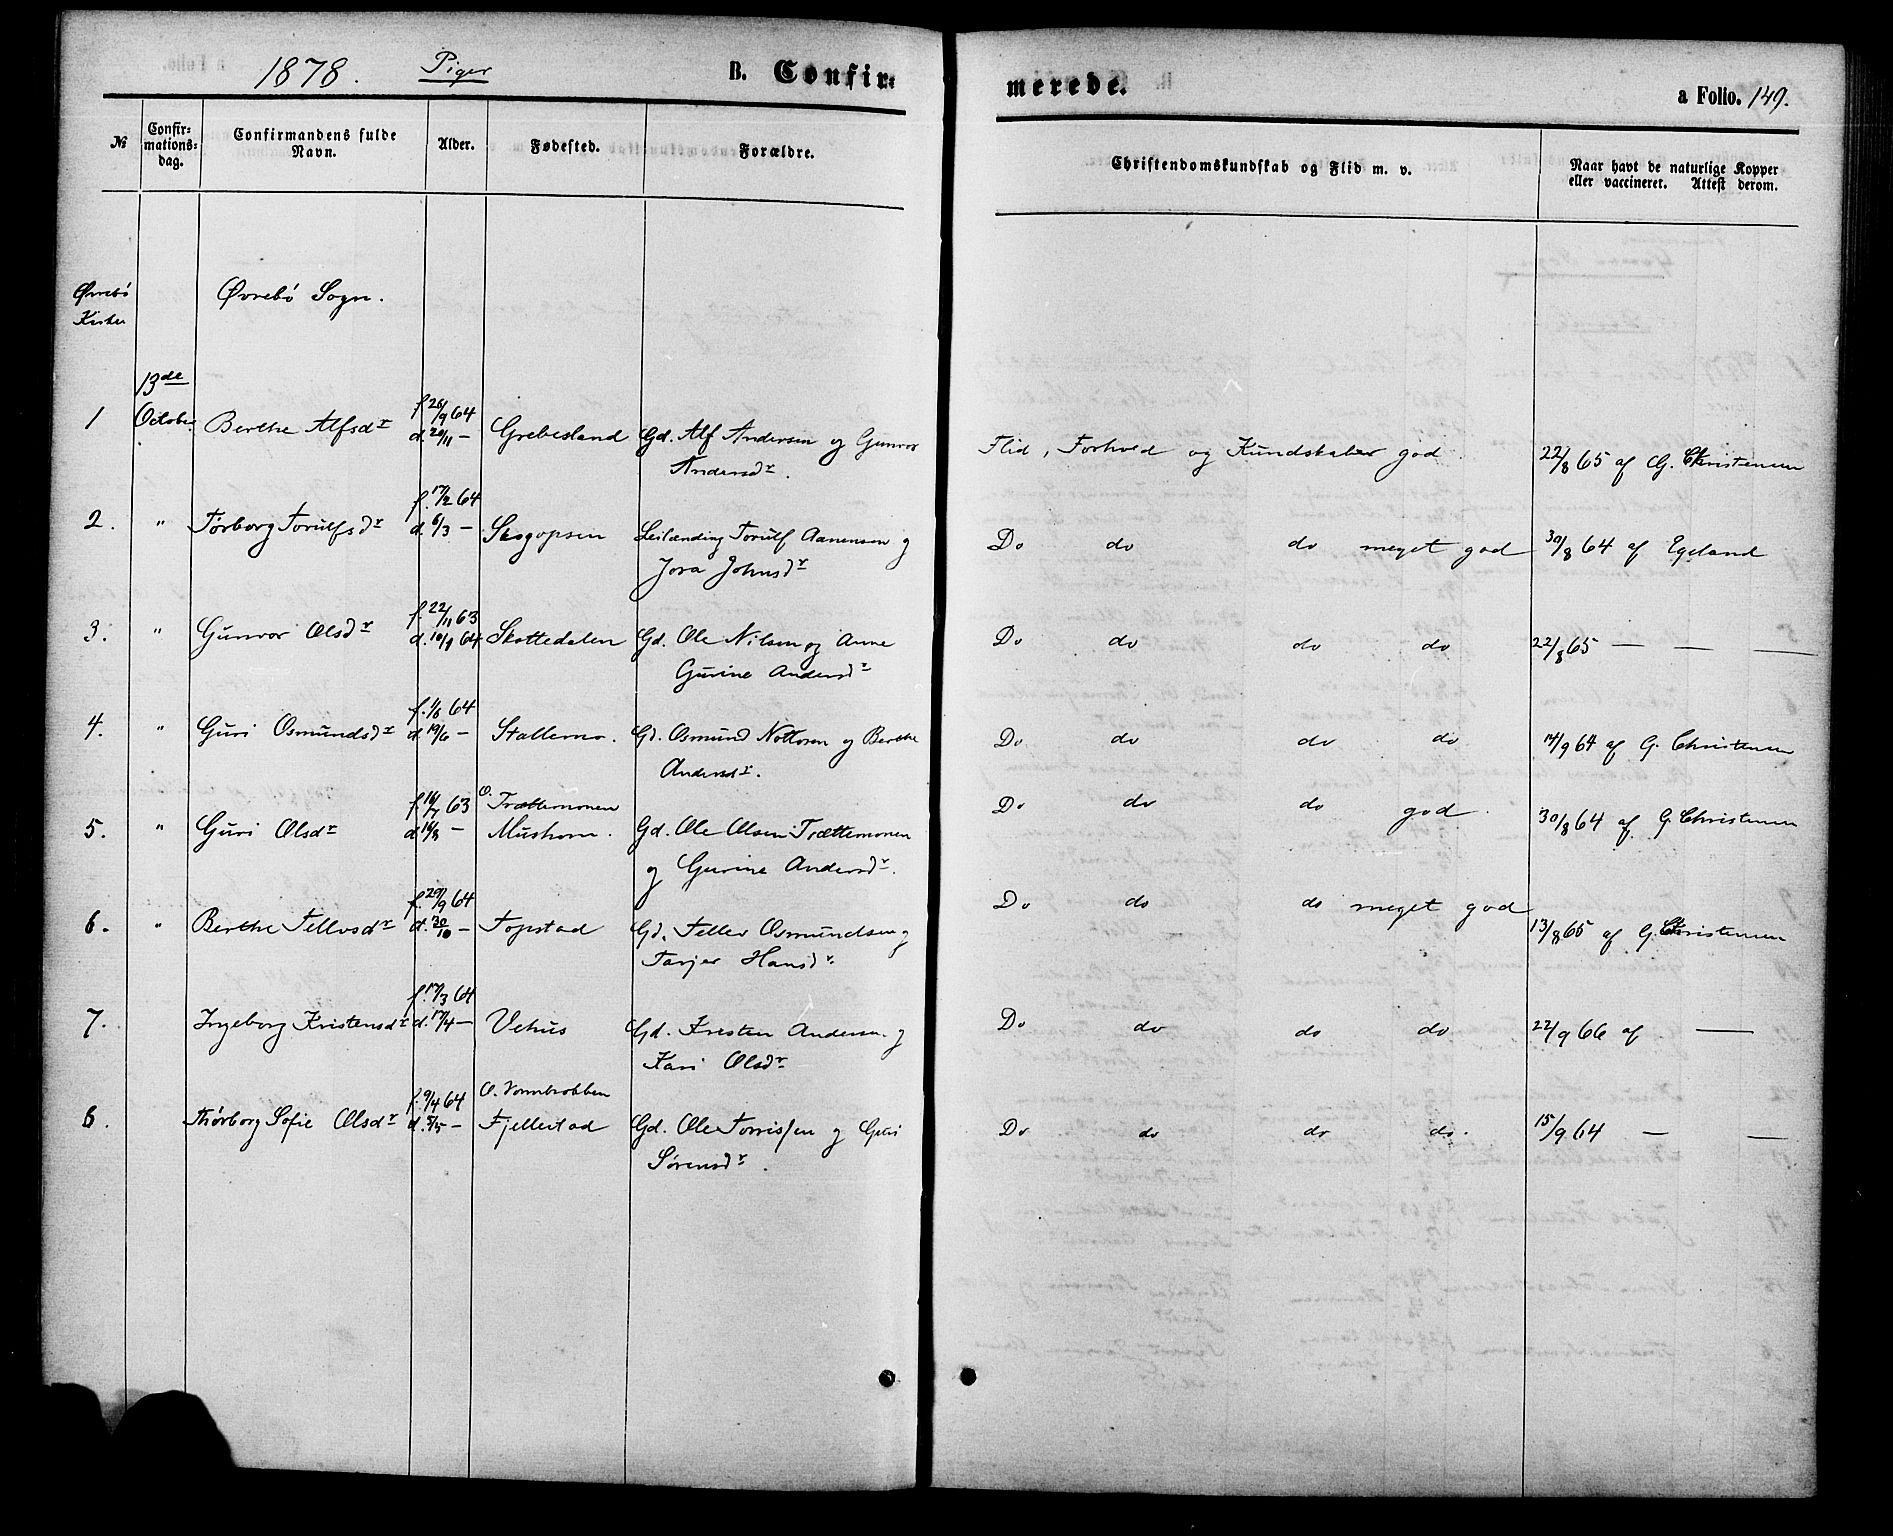 1878. Piger B. Confir-
merede. a Folio. 149.
№ Confir-mations-dag. Confirmandens fulde Navn. Alder. Fødested. Forældre. Christendomskundskab og Flid m. v. Naar havt de naturlige Kopper eller vaccineret. Attest derom.
Øvrebö Øvrebö Sogn.
13de
1 October Berthe Alfsdr f. 26/9 64 Grebesland Gd. Alf Andersen og Gunvor Flid, Forhold og Kundskaber god. 22/8 65 af G. Christensen
Andersdr.
f. 17/2 64
2. " Tørborg Torulfsdr d. 6/3 — Skogopsen Leilænding Torulf Aanensen og Do do do meget god 30/8 64 af Egeland
Jora Johnsdr
f. 22/11 63
3. " Gunvor Olsdr Skottedalen Gd. Ole Nilsen og Anne Do do do do 22/8 65 — — —
Gurine Andersdr
4. " Guri Osmundsdr d. 19/6 — Stallemo. Gd. Osmund Nottosen og Berthe Do do do do 14/9 64 af G. Christensen
Andersdr.
O. Trættemonen
5. " Guri Olsdr Mushom. Gd. Ole Olsen Trættemonen Do do do god. 30/8 64 af G. Christensen
og Gurine Andersdr.
f. 29/9 64
6. " Berthe Tellesdr d. 30/10 — Topstad Gd. Tellev Osmundsen og Do do do meget god 13/8 65 af G. Christensen
Tarjer Hansdr.
f. 17/3 64
7. Ingeborg Kristensdr d. 17/4 — Vehus Gd. Kristen Andersen og Do do do do 22/9 66 af —
Kari Olsdr
f. 9/4 64
8. Thörborg Sofie Olsdr d. 5/5 — Fjellestad Gd. Ole Torrissen og Guri Do do do do. 15/9 64 — —
Sörensdr.